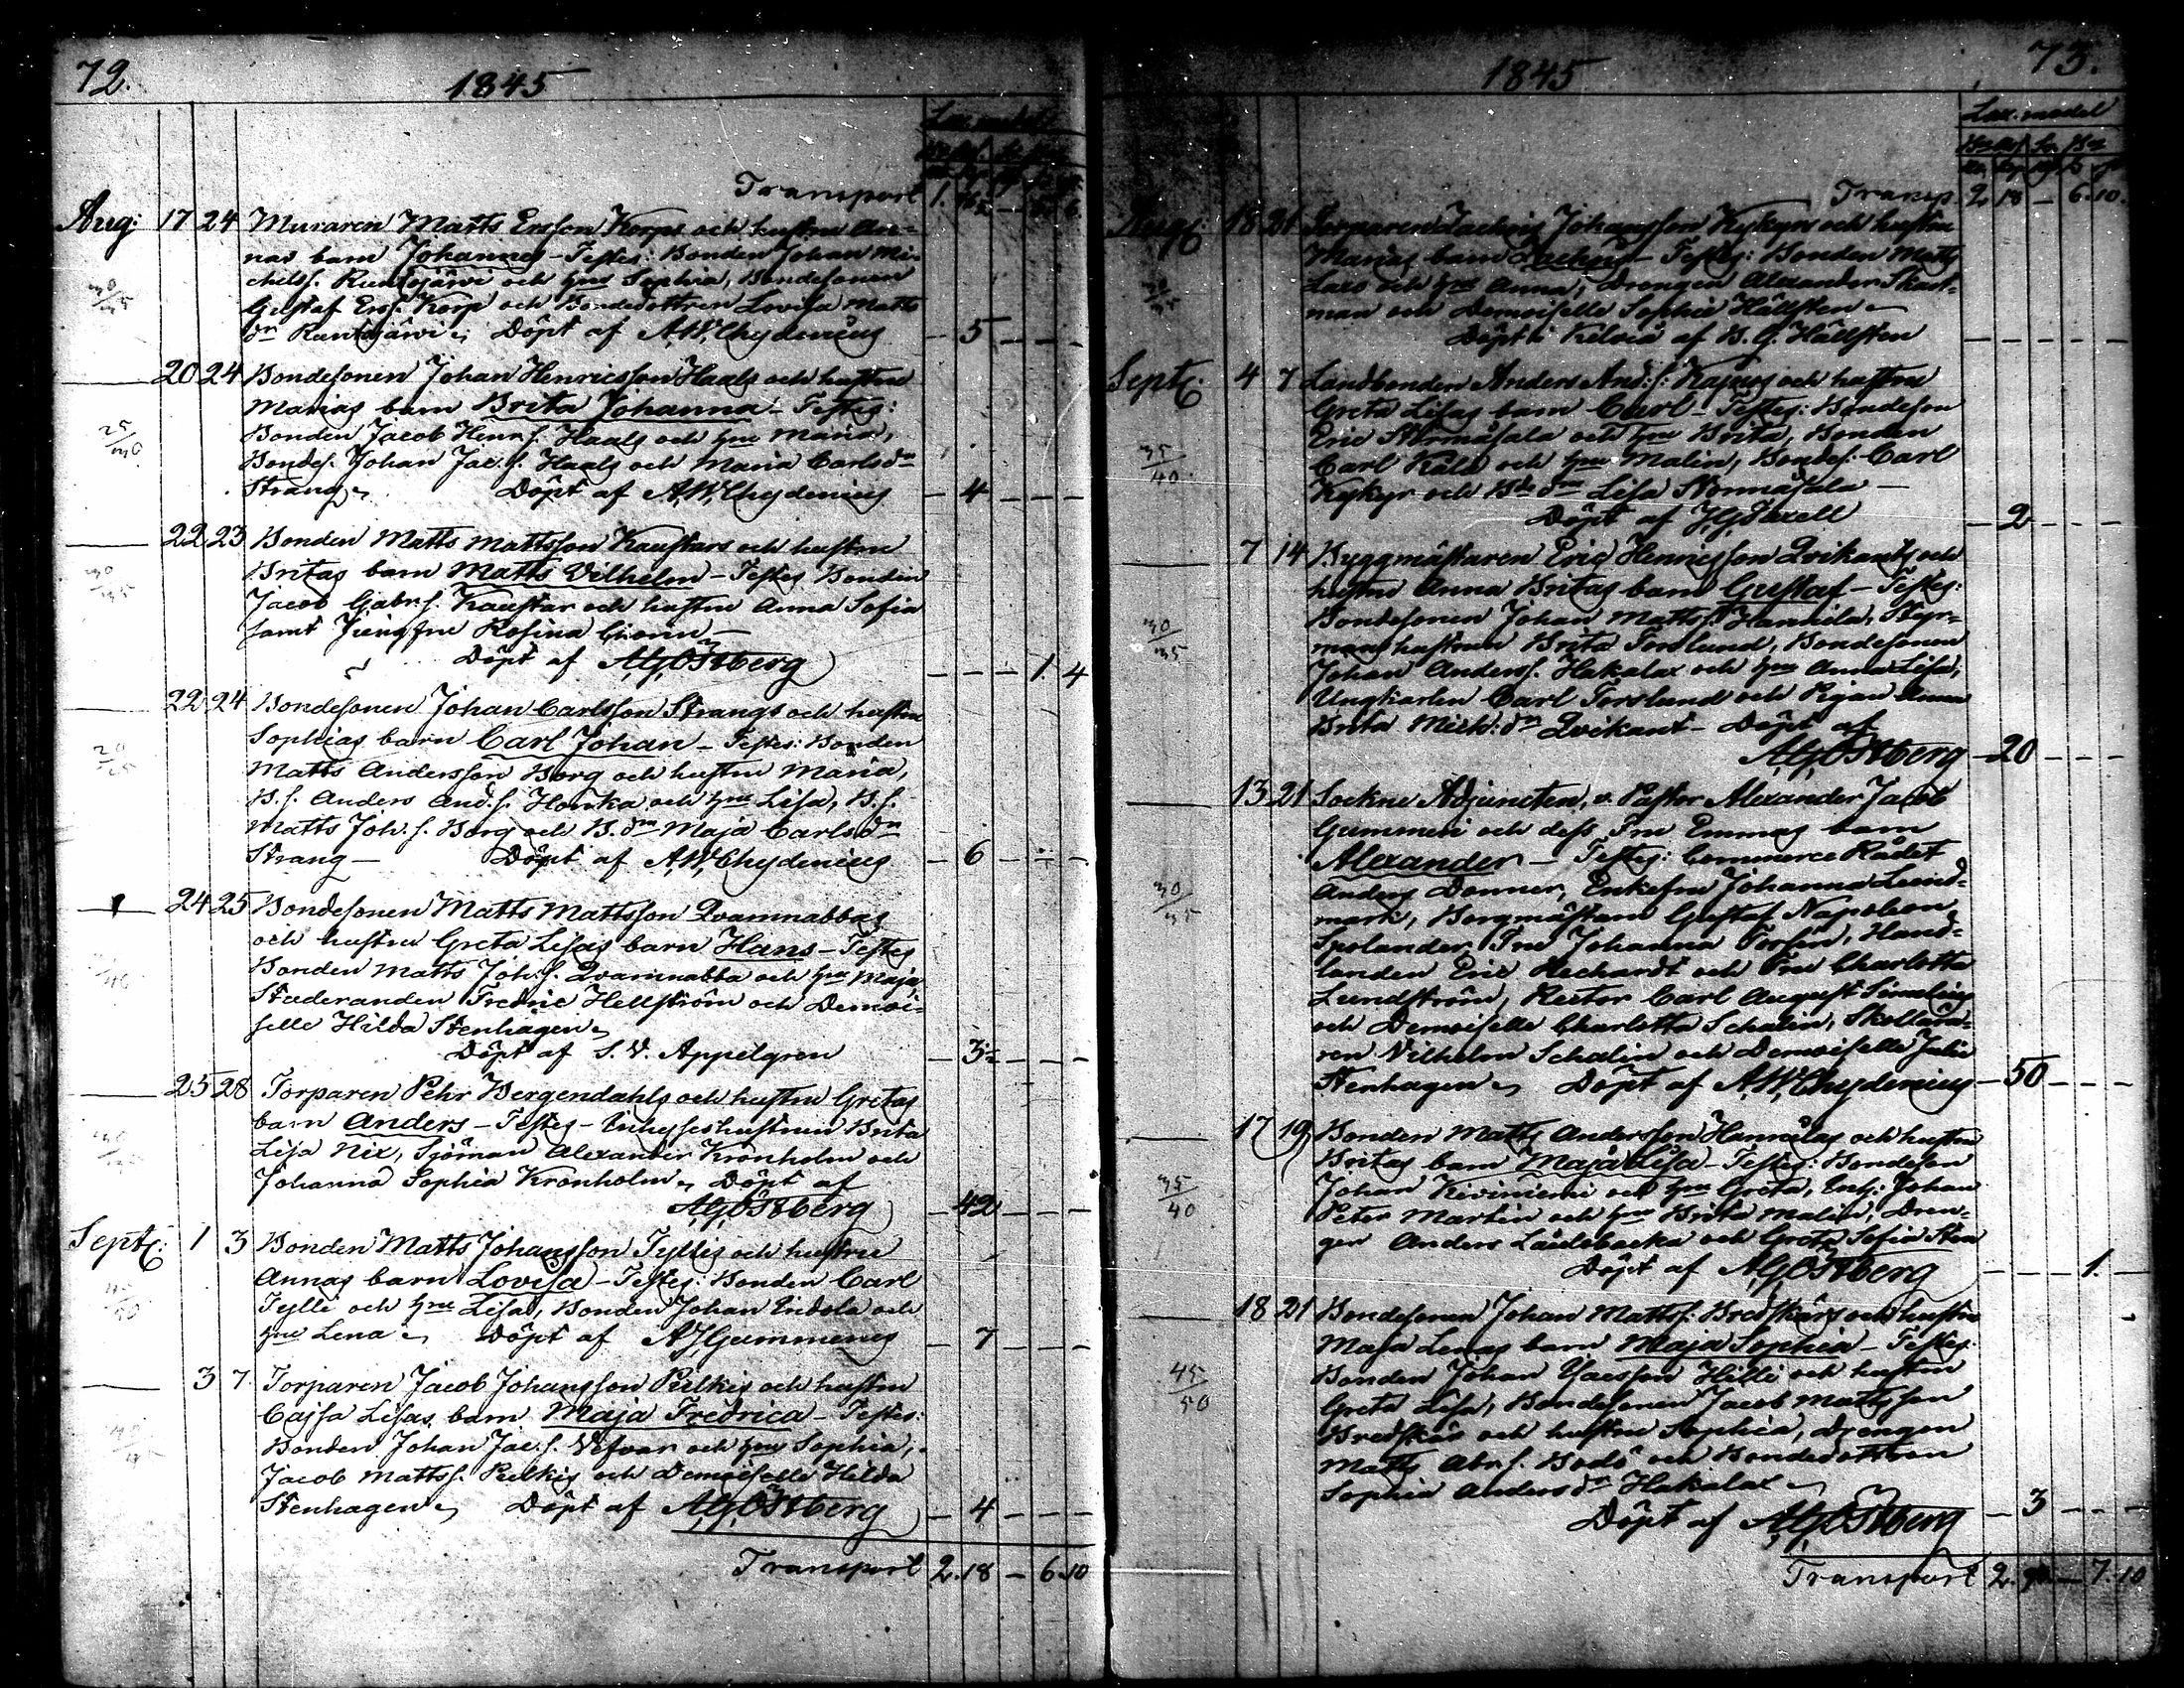 72.
1845
Transport 1.
Aug: 17 24 Muraren Matts Ersson Korps och hustru
nas barn Johannes - Testes: Bonden Johan Mi-
chelss. Runtujärwi och hru Sophia, Bondesonen
Gustaf Erss. Korp och Bondedottren Lovisa Matts
dr Runtujärwi Döpt af A.W.Chydenius - 5 - - -
30/35
20 24 Bondesonen Johan Henricsson Haals och hustru
Marias barn Brita Johanna - Testes:
Bonden Jacob Henr.s. Haals och hru Maria,
Bondes. Johan Jac.s. Haals och Maria Carlsdr
Strang Döpt af A.W.Chydenius - 4 - - -
25/30
22 23 Bonden Matts Mattsson Kaustars och hustru
Britas barn Matts Vilhelm - Testes Bonden
Jacob Gabr.s. Kaustar och hustru Anna Sofia
samt Jungfru Rosina
Döpt af A.G.Östberg - - - 1. 4
30/35
22 24 Bondesonen Johan Carlsson Strangs och hustru
Sophias barn Carl Johan - Testes: Bonden
Matts Andersson Borg och hustru Maria,
B.s. Anders And.s. Honka och hru Lisa, B.s.
Matts Joh.s. Borg och B.dr Maja Carlsdr
Strang - Döpt af A.W.Chydenius - 6 - - -
20/25
24 25 Bondesonen Matts Mattsson Qvamnabbas
och hustru Greta Lisas barn Hans - Testes
Bonden Matts Joh.s. Qvamnabba och hru Maja,
Studeranden Fredric Hellström och Demoi-
selle Hilda Stenhagen
Döpt af S.V. Appelgren - 3 - - -
25 28 Torparen Pehr Bergendahls och hustru Gretas
barn Anders - Testes - Inhyseshustrun Brita
Lisa Nix, Sjöman Alexander Kronholm och
Johanna Sophia Kronholm, Döpt af
A.G.Östberg - 42 - - -
Septr: 1 3 Bonden Matts Johansson Tyllis och hustru
Annas barn Lovisa - Testes: Bonden Carl
Tylli och hru Lisa, Bonden Johan Indola och
hru Lena Döpt af A.J.Gummerus - 7 - - -
45/50
3 7 Torparen Jacob Johansson Pulkis och hustru
Cajsa Lisas barn Maja Fredrica - Testes:
Bonden Johan Jac.s. Vefvar och hru Sophia,
Jacob Mattss. Pulkis och Demoiselle Hilda
Stenhagen Döpt af A.G.Östberg - 4 - - -
Transport 2. 18 - 6. 10
73.
1845
Lax. medel
Transp. 2. 18 - 6. 10.
Aug: 18 21 Torparen Zachris Johansson Kykyrs och hustru
Marias barn Zachris - Testes: Bonden Matts
Lars och hru Anna, Drengen Alexander Skart-
man och Demoiselle Sophie Hällsten
Döpt i Kelviå af B. G. Hällsten - - - - -
30/35
Septr. 4 7 Landbonden Anders And:s: Kajnus och hustru
Greta Lisas barn Carl - Testes: Bondeson
Eric Normåsala och hru Brita, Bonden
Carl Kåla och hru Malin, Bondes: Carl
Kykyr och Bdedr Lisa Normåsala -
Döpt af - 2 - - -
35/40
7 14 Byggmästaren Eric Henricsson Qvikants och
hustru Anna Britas barn Gustaf - Testes:
Bondesonen Johan Mattss. Hannila, Styr-
manshustrun Brita Torslund, Bondesonen
Johan Anderss. Hakalax och hru Anna Lisa,
Ungkarlen Carl Torslund och Pigan Anna
Brita Mich:dr Qvikant - Döpt af
A.G.Östberg - 20 - - -
30/35
13 21 Sockne Adjuncten, v. Pastor Alexander Jacob
Gummeri och dess Fru Emmas barn
Alexander - Testes: Commerce Rådet
Anders Donner, Enkefru Johanna Lund-
mark, Borgmästarn Gustaf Napoleon
Spolander, Fru Johanna Forsén, Hand-
landen Eric Rechardt och Fru Charlotta
Lundström, Rector Carl August Simelius
och Demoiselle Charlotta Schalin, Skollära-
ren Vilhelm Schalin och Demoiselle Julie
Stenhagen Döpt af A.W.Chydenius - 50 - - -
30/35
17 19 Bonden Matts Andersson Hannilas och hustru
Britas barn Maja Lisa - Testes: Bondeson
Johan Kiviniemi och hru Greta, Inh: Johan
Peter Martin och hru Brita Malin, Dren-
gen Anders Låulobacka och Greta Sofia Sten
Döpt af A.G.Östberg - - - 1. -
35/40
18 21 Bondesonen Johan Mattss: Bredskärs och hustru
Maja Lenas barn Maja Sophia - Testes:
Bonden Johan Hilli och hustru
Greta Lisa, Bondesonen Jacob Mattsson
Bredskär och hustru Sophia, drengen
Matts Abr.s. Bodö och Bondedottren
Sophia Andersdr Hakalax
Döpt af A.G.Östberg - 3 - - -
45/50
Transport 2. - 7. 10